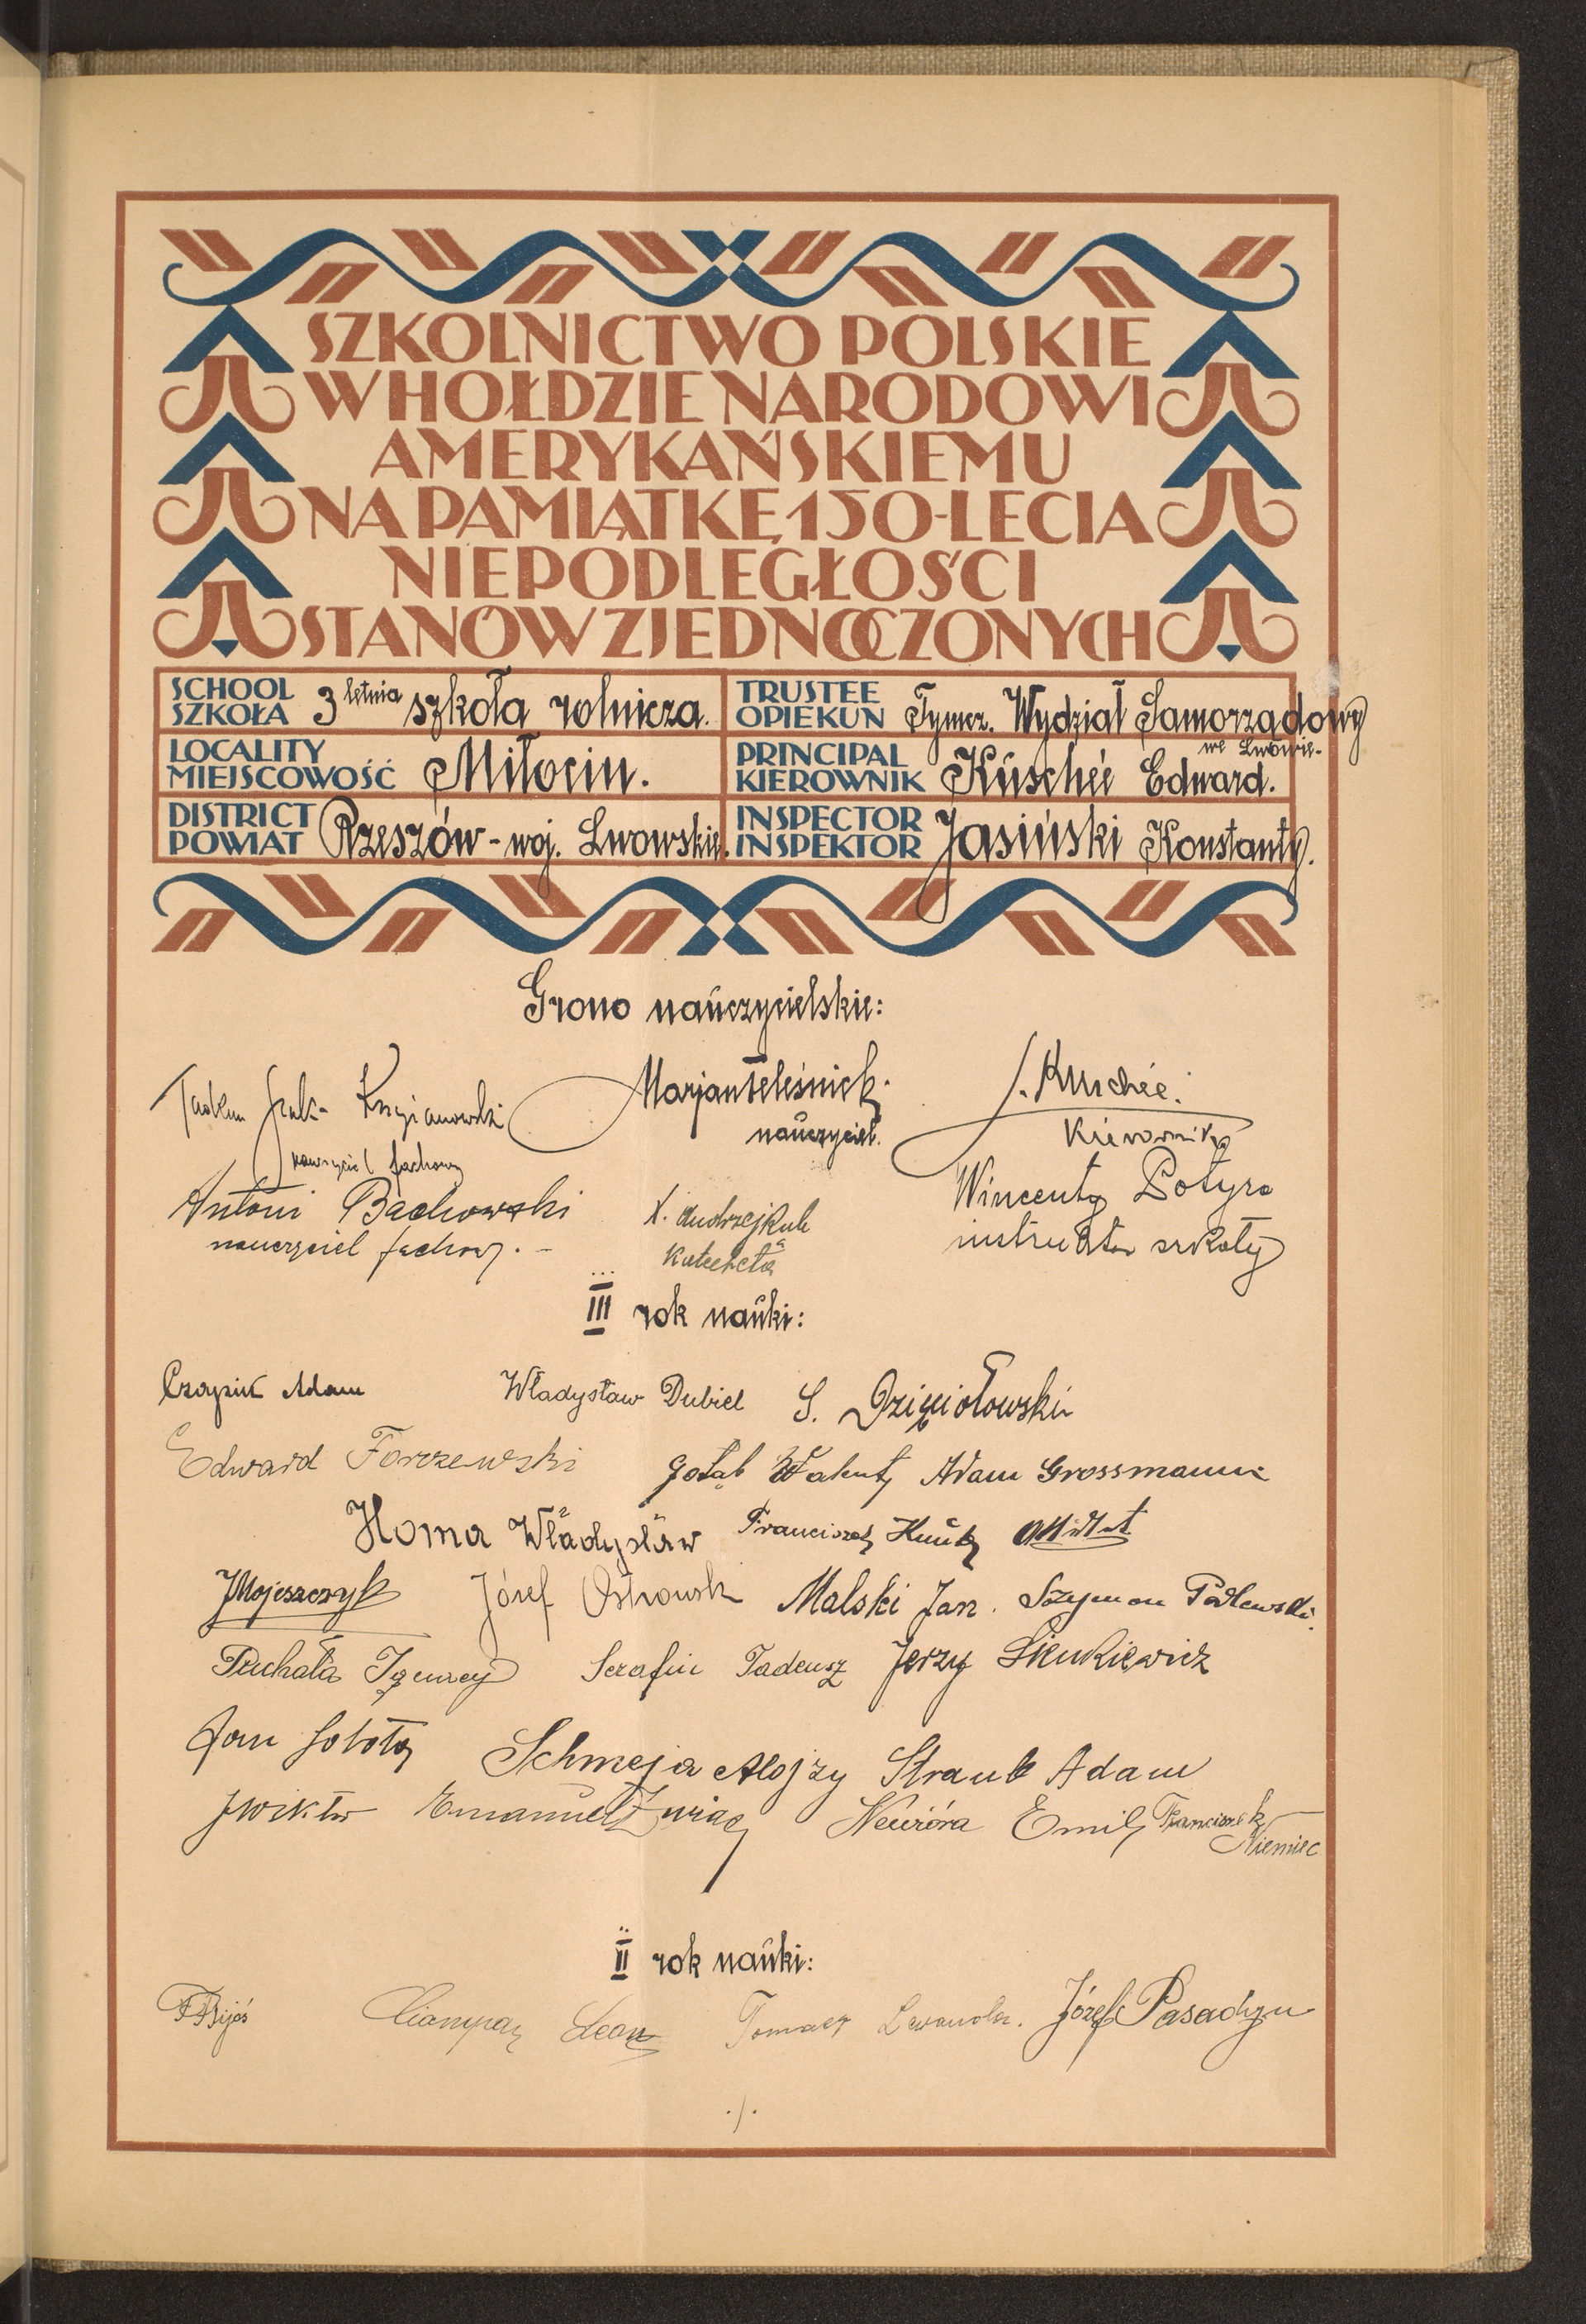 SZKOLNICTWO POLSKIE
W HOŁDZIE NARODOWI
AMERYKAŃSKIEMU
NA PAMIĄTKĘ 150-LECIA
NIEPODLEGŁOŚCI
STANÓW ZJEDNOCZONYCH
SCHOOL
SZKOŁA 3 letnia szkoła rolnicza.
TRUSTEE
OPIEKUN Tymcz. Wydział Samorządowy
we Lwowie.
LOCALITY
MIEJSCOWOŚĆ Miłocin.
PRINCIPAL
KIEROWNIK Kuschée Edward.
DISTRICT
POWIAT Rzeszów - woj. Lwowskie.
INSPECTOR
INSPEKTOR Jasiński Konstanty.
Grono nauczycielskie:
Krzyżanowski Marjan Teleśnicki Kuschée.
nauczyciel fachowy nauczyciel. Kierownik
Antoni Bachowski X. Andrzej Kuk Wincenty Potyra
nauczyciel fachowy. - katecheta instruktor szkoły
III rok nauki:
Adam Władysław Dubiel S. Dzięciołowski
Edward Forczewski Gołąb Walenty Adam Grossmann
Homa Władysław Franciszek
JMojeszczyk Józef Ostrowsk Malski Jan. Szymon Podlewski.
Puchała Ignacy Serafin Tadeusz Jerzy Sienkiewicz
Jan Sobota Schmeja Alojzy Straub Adam
JWiktor Emanuel Żuriag Newióra Emil Franciszek
Niemiec
II rok nauki:
FBijoś Ciompa Leon Tomasz Józef Pasadyn
./.